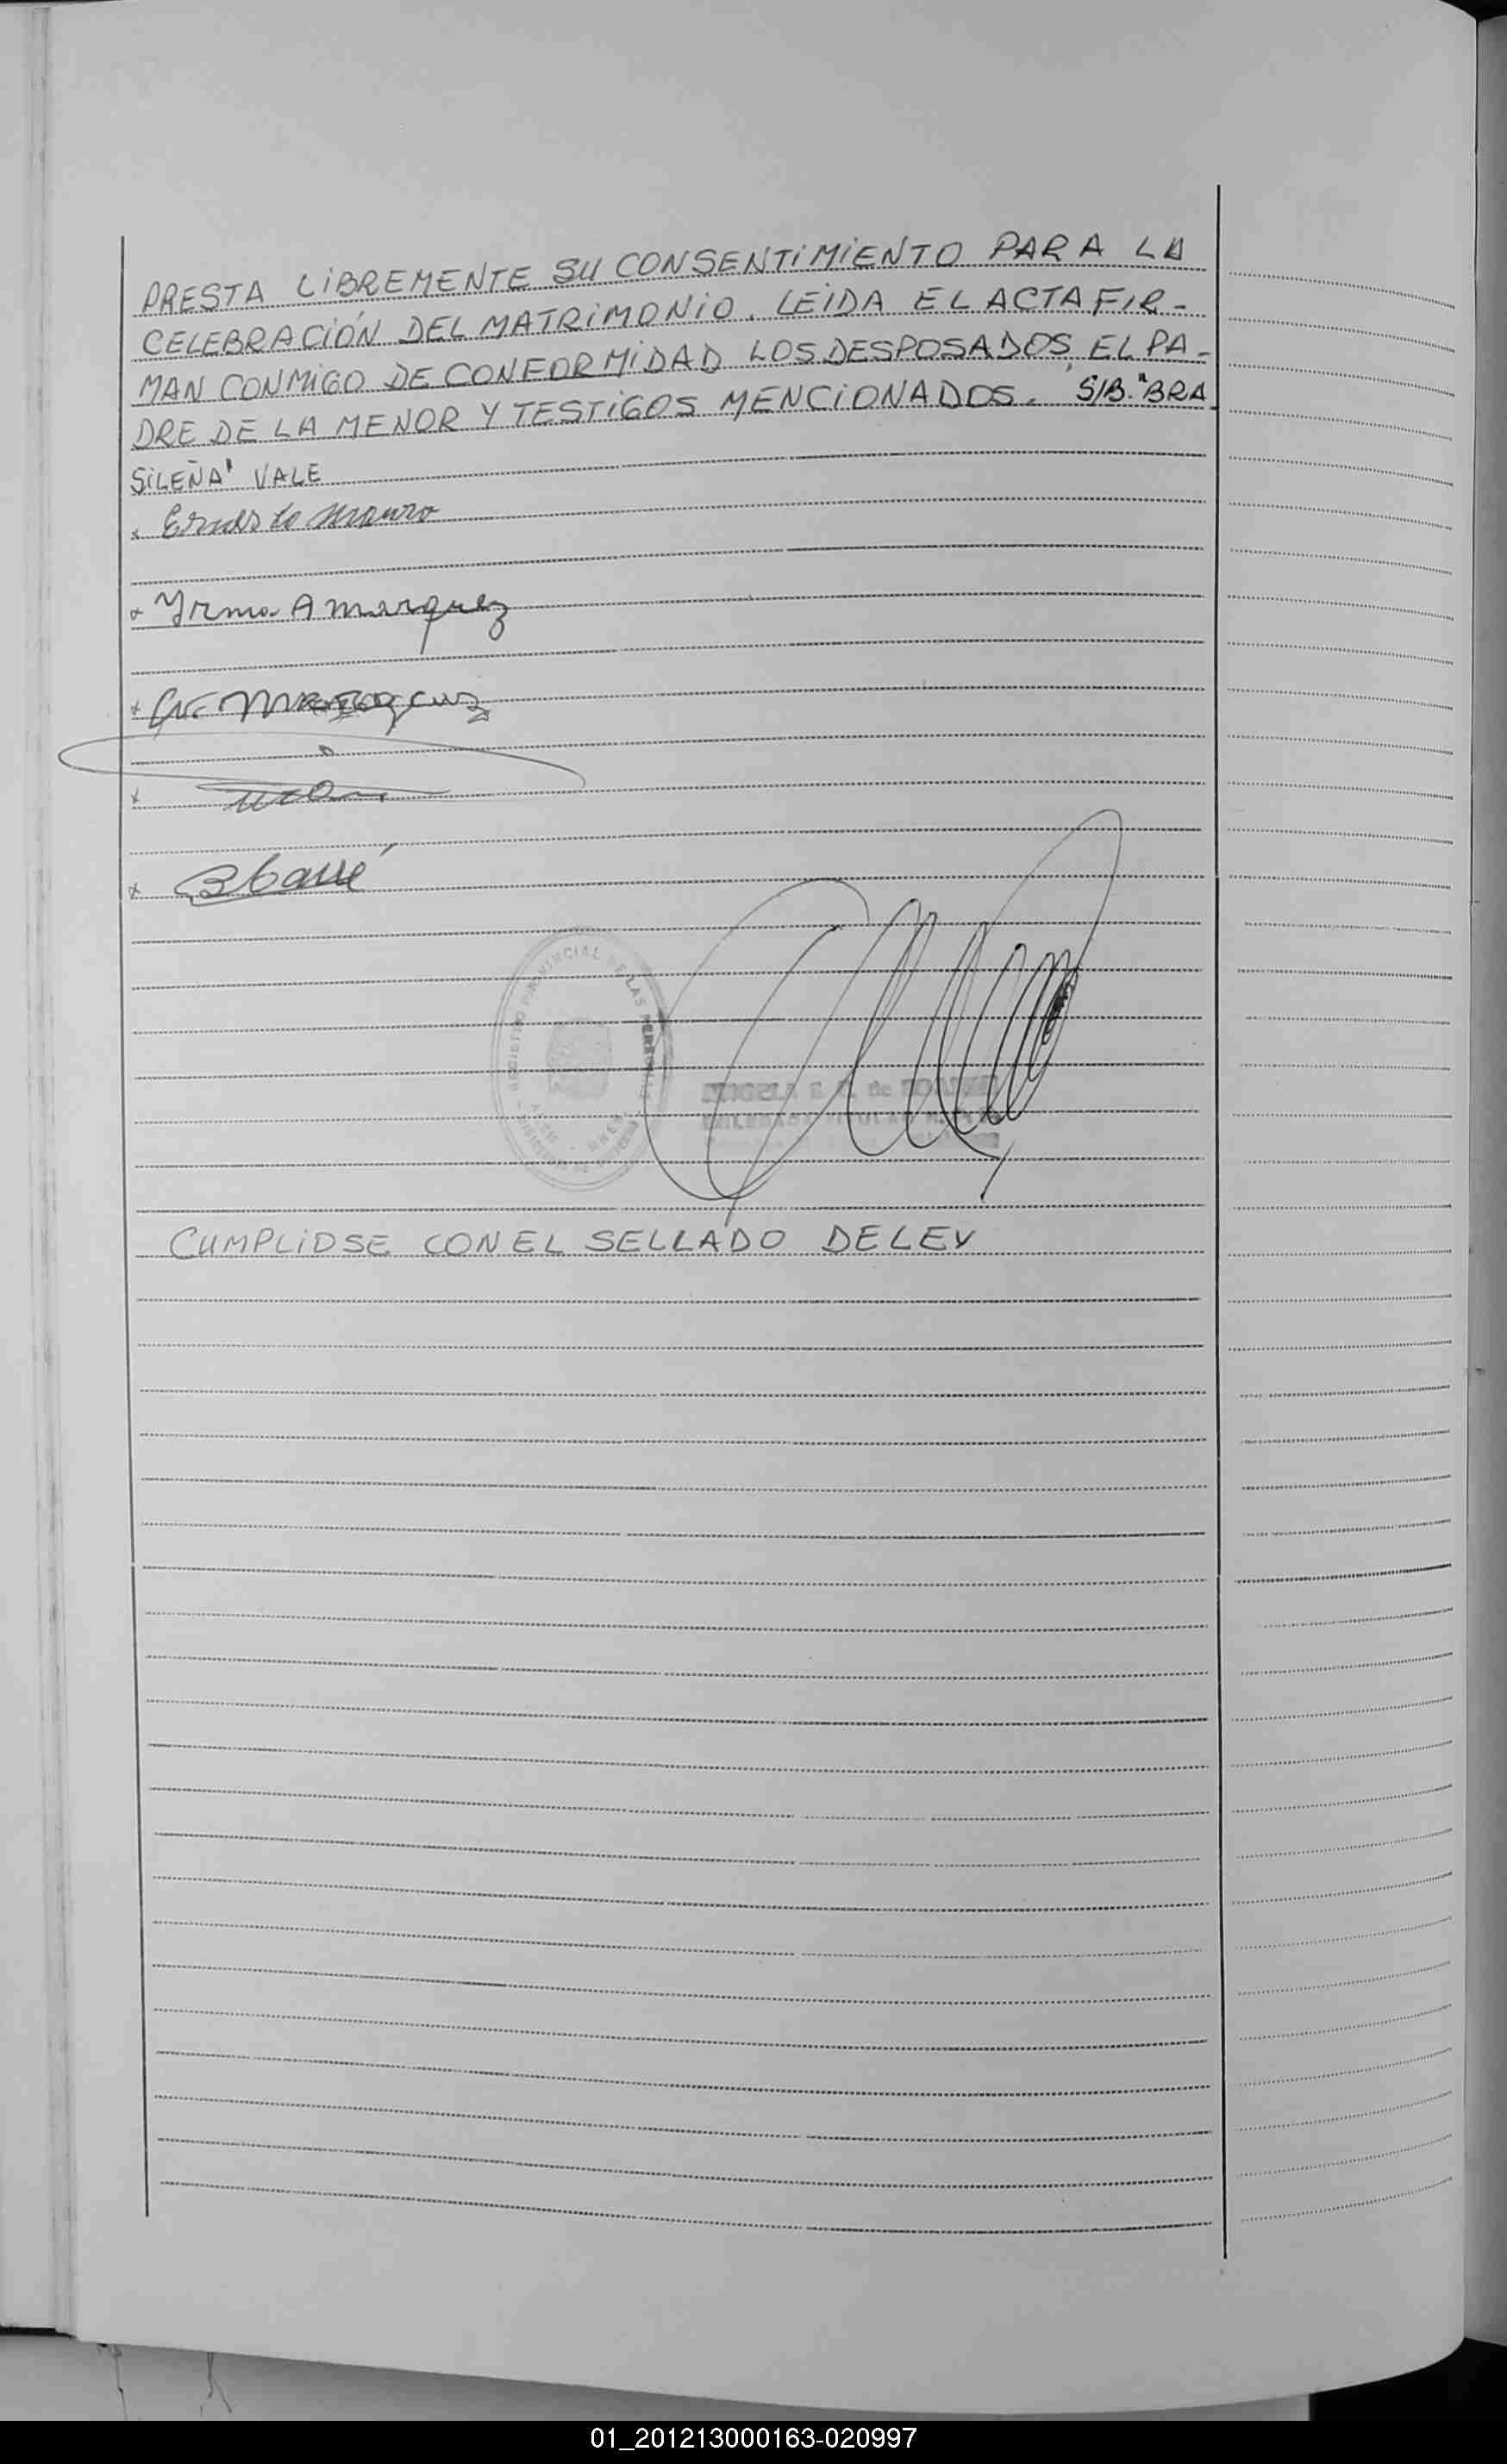 PRESTA LIBREMENTE SU CONSENTIMIENTO PARA LA
CELEBRACIÓN DEL MATRIMONIO. LEIDA EL ACTA FIR-
MAN CONMIGO DE CONFORMIDAD LOS DESPOSADOS, EL PA-
DRE DE LA MENOR Y TESTIGOS MENCIONADOS. S/B. "BRA
SILEÑA" VALE
x Ernesto
x Yrma A Marquez
x
x
x
REGISTRO PROVINCIAL DE LAS PERSONAS
de
CUMPLIOSE CON EL SELLADO DE LEY
01_201213000163-020997